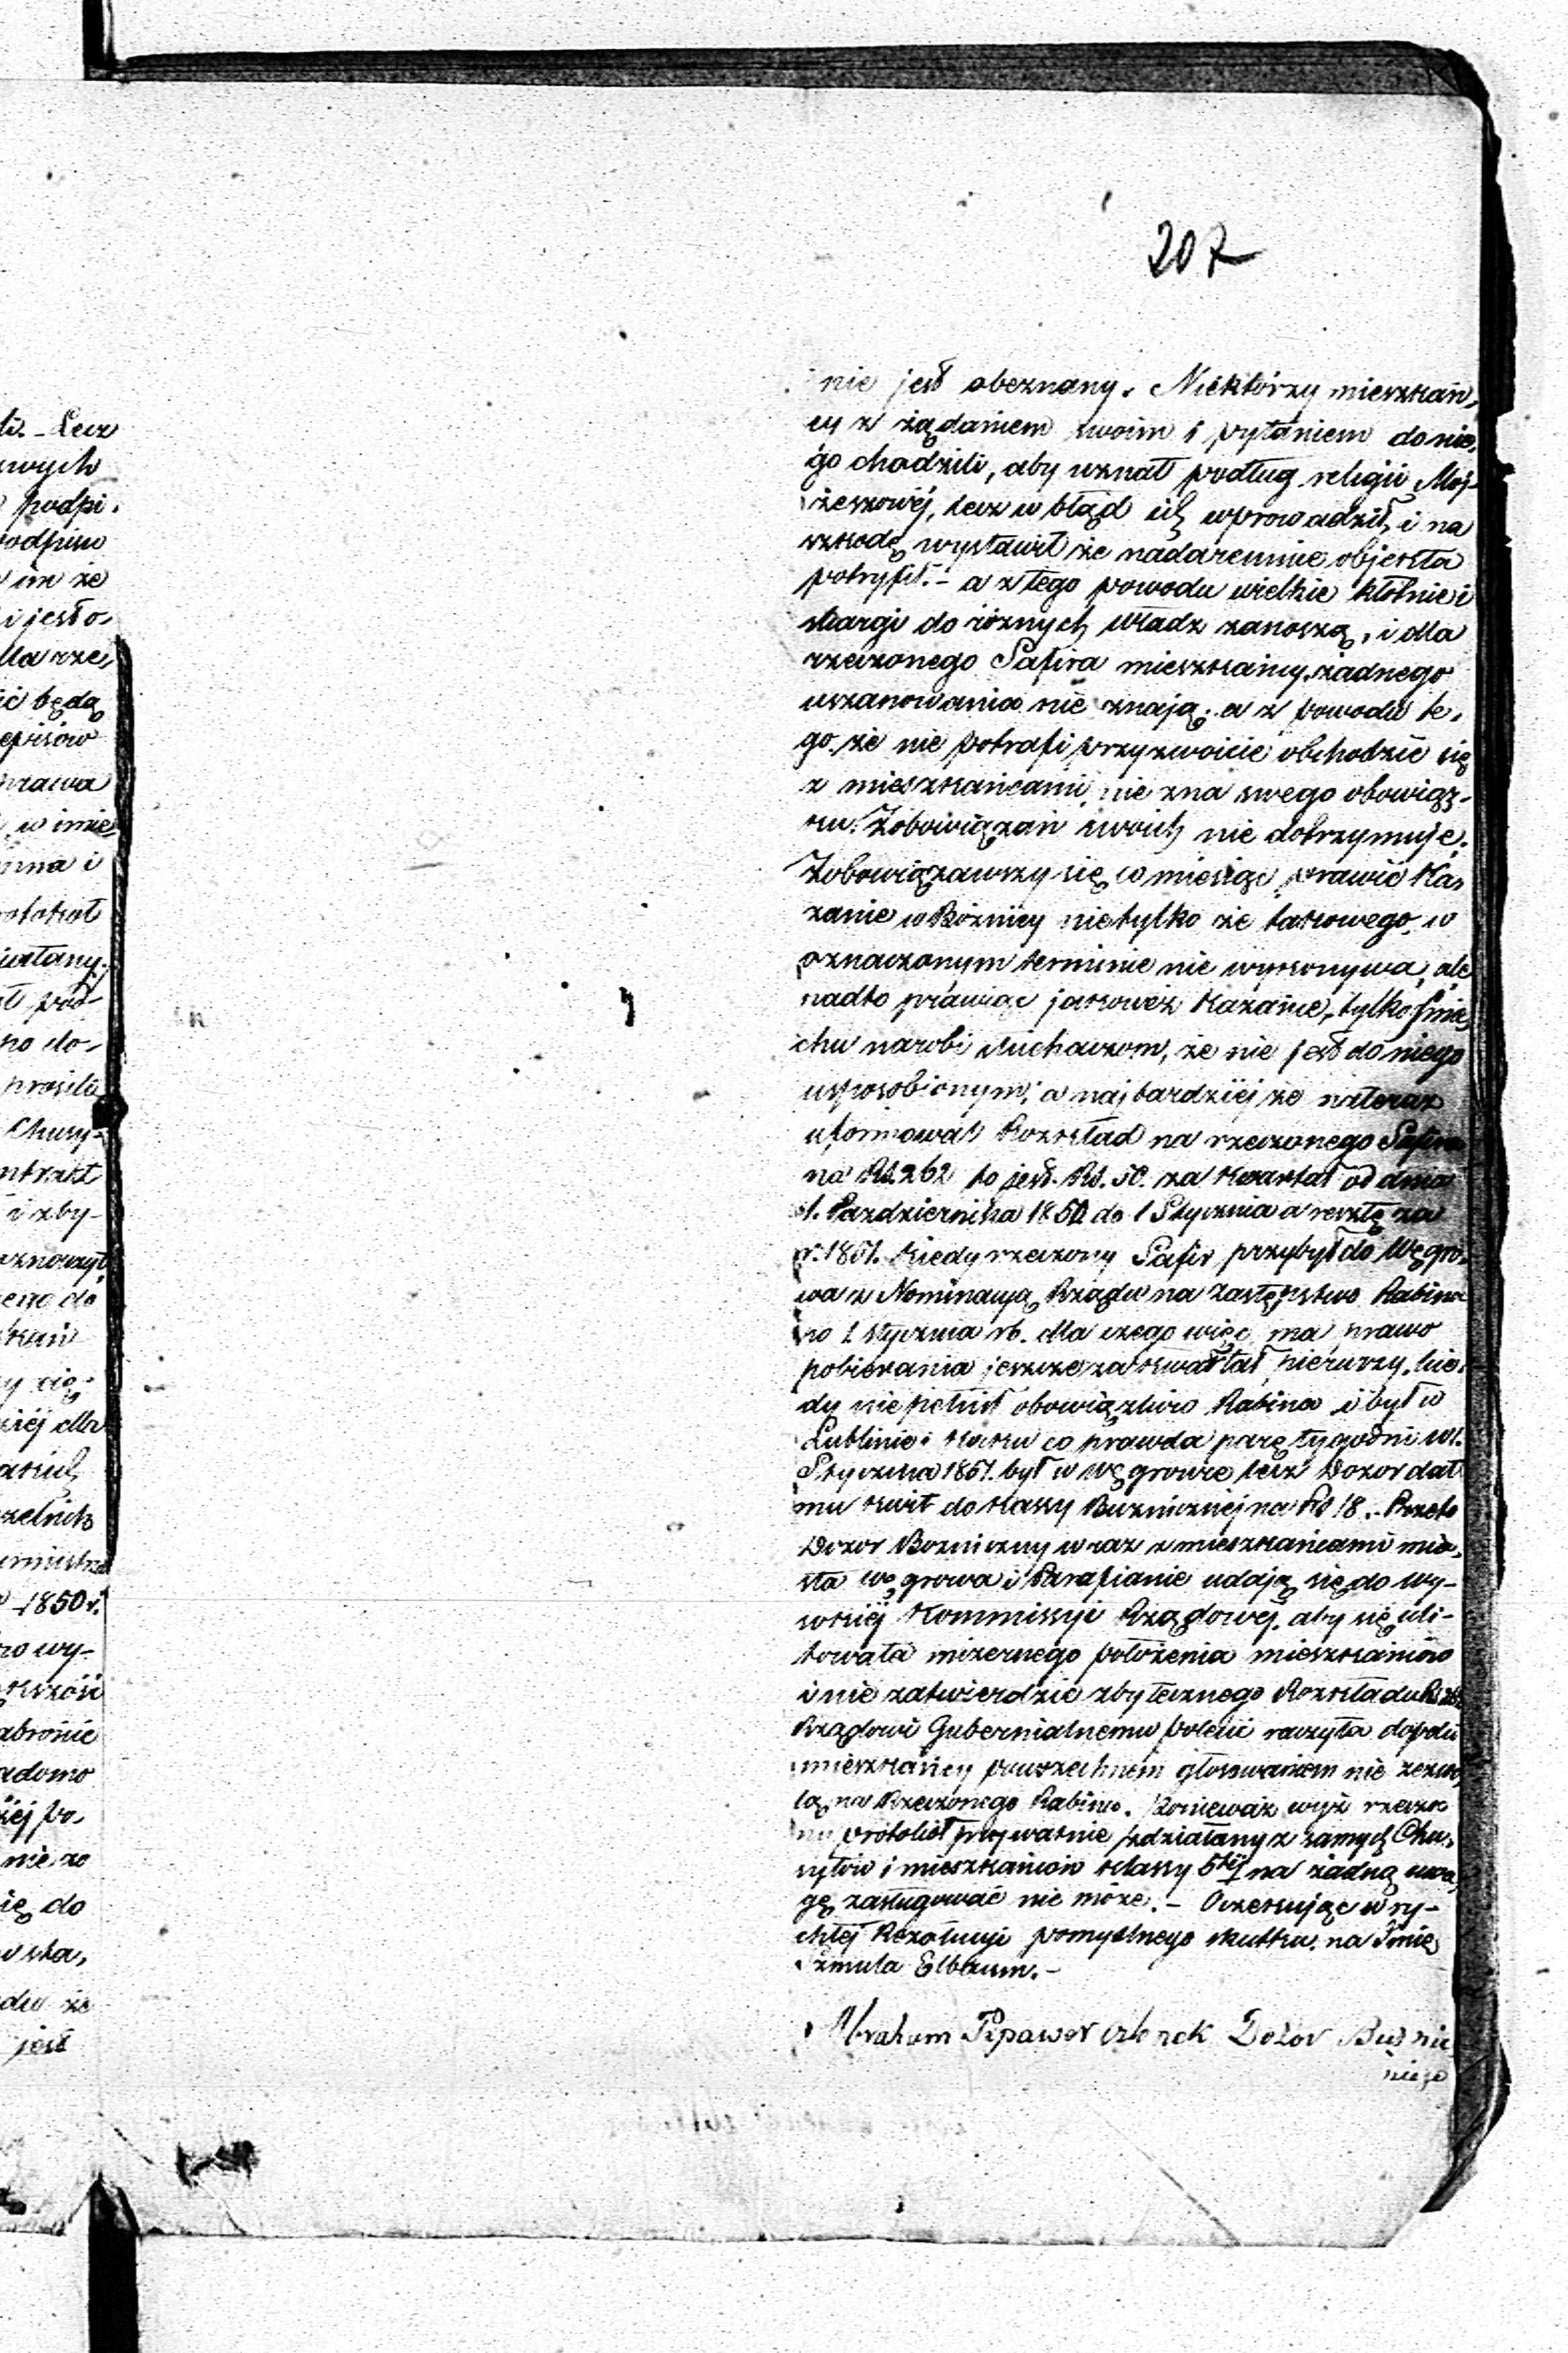 li. - Lecz
podpi.
podpisu
im że
i jest o-
dla rze,
ić będą
episów
prawa
w imie,
nna i
no do-
prosili
Chusy-
ntrakt
i zby-
y cią-
iéj dla
1850 r.
ro wy-
abronie
adomo
iéj po,
nie zo
ię do
du że
jest
207
nie jest obeznany. Niektórzy mieszkań,
cy z żądaniem swoim i pytaniem do nie,
go chodzili, aby uznał podług religii Moj-
żeszowéj, lecz w błąd ich wprowadził, i na
szkodę wystawił że nadaremnie objekta
potryfił. - a z tego powodu wielkie kłótnie i
skargi do różnych Władz zanoszą, i dla
rzeczonego Safira mieszkańcy żadnego
uszanowania nie znają; a z powodu te,
go że nie potrafi przyzwoicie obchodzić się
z mieszkańcami, nie zna swego obowiąz-
ku. Zobowiązań swoich nie dotrzymuje.
Zobowiązawszy się co miesiąc prawić Ka,
zanie w Bóżnicy nietylko że takowego, w
oznaczonym terminie nie wykonywa, ale
nadto prawiąc jakoweż Kazanie, tylko śmie,
chu narobi słuchaczom, że nie jest do niego
usposobionym; a najbardziéj że nateraz
uformował Rozkład na rzeczonego Safira
na Rs. 262 to jest. Rs. 50. za Kwartał od dnia
1. Października 1850 do 1 Stycznia a resztę za
r. 1851. Kiedy rzeczony Safir przybył do Węgro,
wa z Nominacyą Rządu na zastępstwo Rabina
po 1 stycznia rb. dla czego więc ma prawo
pobierania jeszcze za kwartał pierwszy, kie,
dy nie pełnił obowiązków Rabina i był w
Lublinie; co prawda parę tygodni w r.
Stycznia 1851. był w Węgrowie lecz Dozor dał
mu kwit do Kassy Buzniczniej na Rs 18. - Przeto
Dozor Bozniczny wraz z mieszkańcami mia,
sta Węgrowa i Parafianie udają się do Wy-
sokiéj Kommissyi Rządowej, aby się uli-
towała mizernego położenia mieszkańców
i nie zatwierdzić zbytecznego Rozkładu
Rządowi Gubernialnemu polecić raczyła dopóki
mieszkańcy powszechnem głosowaniem nie zezwo,
lą na Rzeczonego Rabina. Ponieważ wyż rzeczo
ny protokół prywatnie zdziałany z samych Chu,
sytów i mieszkańców klassy 5téj na żadną uwa,
gę zasługować nie może. - Oczekując w ry-
chłéj Rezolucyi pomyślnego skutku na Imię
Szmula Elbaum. -
Abraham Dozor Buznic
niego